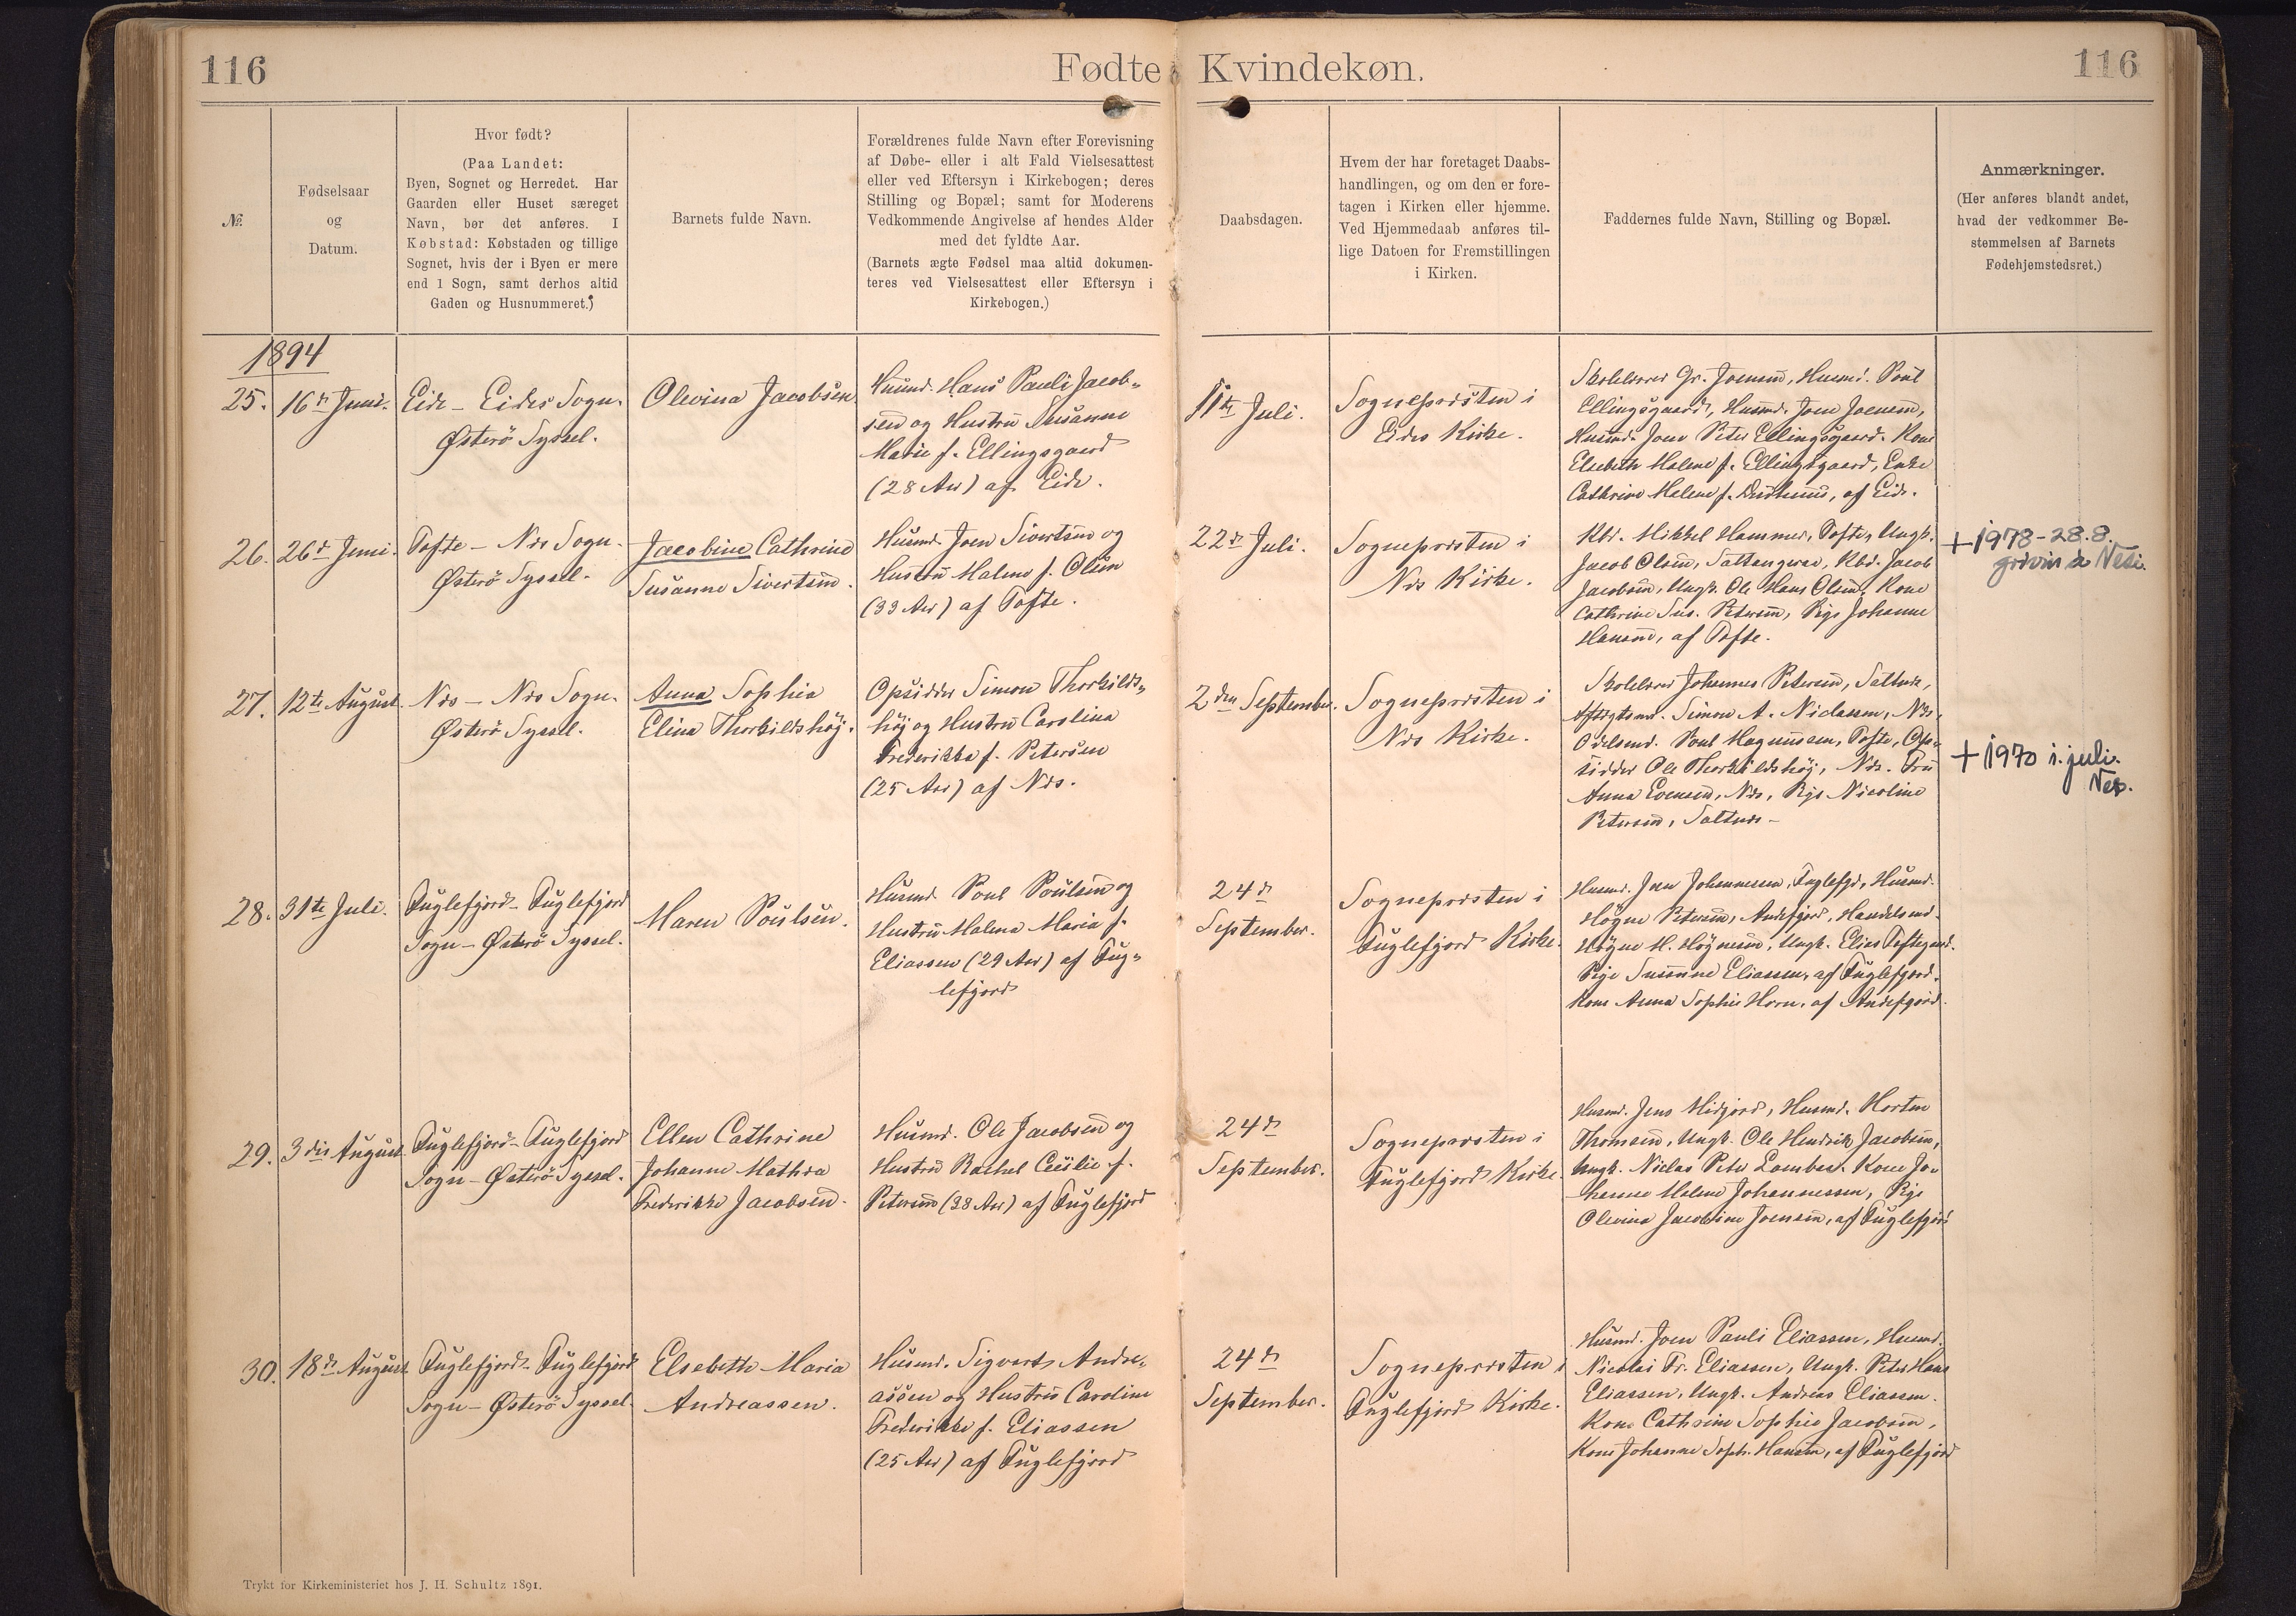 116
Fødte Kvindekøn.
116
№.
Fødselsaar
og
Datum.
Hvor født?
(Paa Landet:
Byen, Sognet og Herredet. Har
Gaarden eller Huset særeget
Navn, bør det anføres. I
Købstad: Købstaden og tillige
Sognet, hvis der i Byen er mere
end 1 Sogn, samt derhos altid
Gaden og Husnummeret.)
Barnets fulde Navn.
Forældrenes fulde Navn efter Forevisning
af Døbe- eller i alt Fald Vielsesattest
eller ved Eftersyn i Kirkebogen; deres
Stilling og Bopæl; samt for Moderens
Vedkommende Angivelse af hendes Alder
med det fyldte Aar.
(Barnets ægte Fødsel maa altid dokumen-
teres ved Vielsesattest eller Eftersyn i
Kirkebogen.)
Daabsdagen.
Hvem der har foretaget Daabs-
handlingen, og om den er fore-
tagen i Kirken eller hjemme.
Ved Hjemmedaab anføres til-
lige Datoen for Fremstillingen
i Kirken.
Faddernes fulde Navn, Stilling og Bopæl.
Anmærkninger.
(Her anføres blandt andet,
hvad der vedkommer Be-
stemmelsen af Barnets
Fødehjemstedsret.)
1894
25.
16de Juni.
Eide - Eides Sogn.
Østerö Syssel.
Olevina Jacobsen
Husmd. Hans Pauli Jacob-
sen og Hustru Susanne
Marie f. Ellingsgaard
(28 Aar) af Eide.
11te Juli.
Sognepræsten i
Eides Kirke.
Skolelærer Gr. Joensen, Husmd. Poul
Ellingsgaard, Husmd. Joen Joensen,
Husmd. Joen Peter Ellingsgaard. Kone
Elsebeth Malene f. Ellingsgaard, Enke
Cathrine Malene f. af Eide.
26.
26de Juni.
Tofte - Næs Sogn.
Østerö Syssel.
Jacobine Cathrine
Susanne Sivertsen.
Husmd. Joen Sivertsen og
Hustru Malene f. Olsen
(33 Aar) af Tofte.
22de Juli.
Sognepræsten i
Næs Kirke.
Kbd. Mikkel Hammer, Tofte, Ungk.
Jacob Olsen, Saltangaraa, Kbd. Jacob
Jacobsen, Ungk. Ole Hans Olsen, Kone
Cathrine Sus. Petersen, Pige Johanne
Hansen, af Tofte.
+ 1978-28.8.
grivin á Nesi.
27.
12te August.
Næs - Næs Sogn.
Østerö Syssel.
Anna Sophia
Elina Thorkildshöj.
Opsidder Simon Thorkilds-
höj og Hustru Carolina
Frederikka f. Petersen
(25 Aar) af Næs.
2den September.
Sognepræsten i
Næs Kirke.
Skolelærer Johannes Petersen, Saltnæs,
Aftægtsmd. Simon A. Niclasen, Næs,
Odelsmd. Poul Magnussen, Tofte, Op-
sidder Ole Thorkildshöj, Næs. Fru
Anna Evensen, Næs, Pige Nicoline
Petersen, Saltnæs -
+ 1970 i. juli.
Nes.
28.
31te Juli.
Fuglefjord - Fuglefjord
Sogn - Østerö Syssel.
Maren Poulsen.
Husmd. Poul Poulsen og
Hustru Malena Maria f.
Eliassen (29 Aar) af Fug-
lefjord
24de
September.
Sognepræsten i
Fuglefjord Kirke.
Husmd. Joen Johannessen, Fuglefjd, Husmd.
Högne Petersen, Andefjord, Handelsmd.
Högne M. Högnesen, Ungk. Elias Toftegaard.
Pige Susanne Eliassen, af Fuglefjord.
Kone Anna Sophie Horn, af Andefjord.
29.
3die August.
Fuglefjord - Fuglefjord
Sogn - Østerö Syssel.
Ellen Cathrine
Johanne Mathea
Frederikke Jacobsen.
Husmd. Ole Jacobsen og
Hustru Rachel Cecilie f.
Petersen (38 Aar) af Fuglefjord
24de
September.
Sognepræsten i
Fuglefjord Kirke.
Husmd. Jens Midjord, Husmd. Morten
Thomsen, Ungk. Ole Hendrik Jacobsen,
Ungk. Niclas Peter Lamhaer. Kone Jo-
hanne Malene Johannessen, Pige
Olevina Jacobine Joensen, af Fuglefjord
30.
18de August
Fuglefjord - Fuglefjord
Sogn - Østerö Syssel.
Elsebeth Maria
Andreassen.
Husmd. Sigvart Andre-
assen og Hustru Caroline
Frederikke f. Eliassen
(25 Aar) af Fuglefjord
24de
September.
Sognepræsten i
Fuglefjord Kirke.
Husmd. Joen Pauli Eliassen, Husmd.
Nicolai Fr. Eliassen, Ungk. Peter Hans
Eliassen, Ungk. Andreas Eliassen.
Kone Cathrine Sophie Jacobsen,
Kone Johanne Soph. Hansen, af Fuglefjord
Trykt for Kirkeministeriet hos J. H. Schultz 1891.